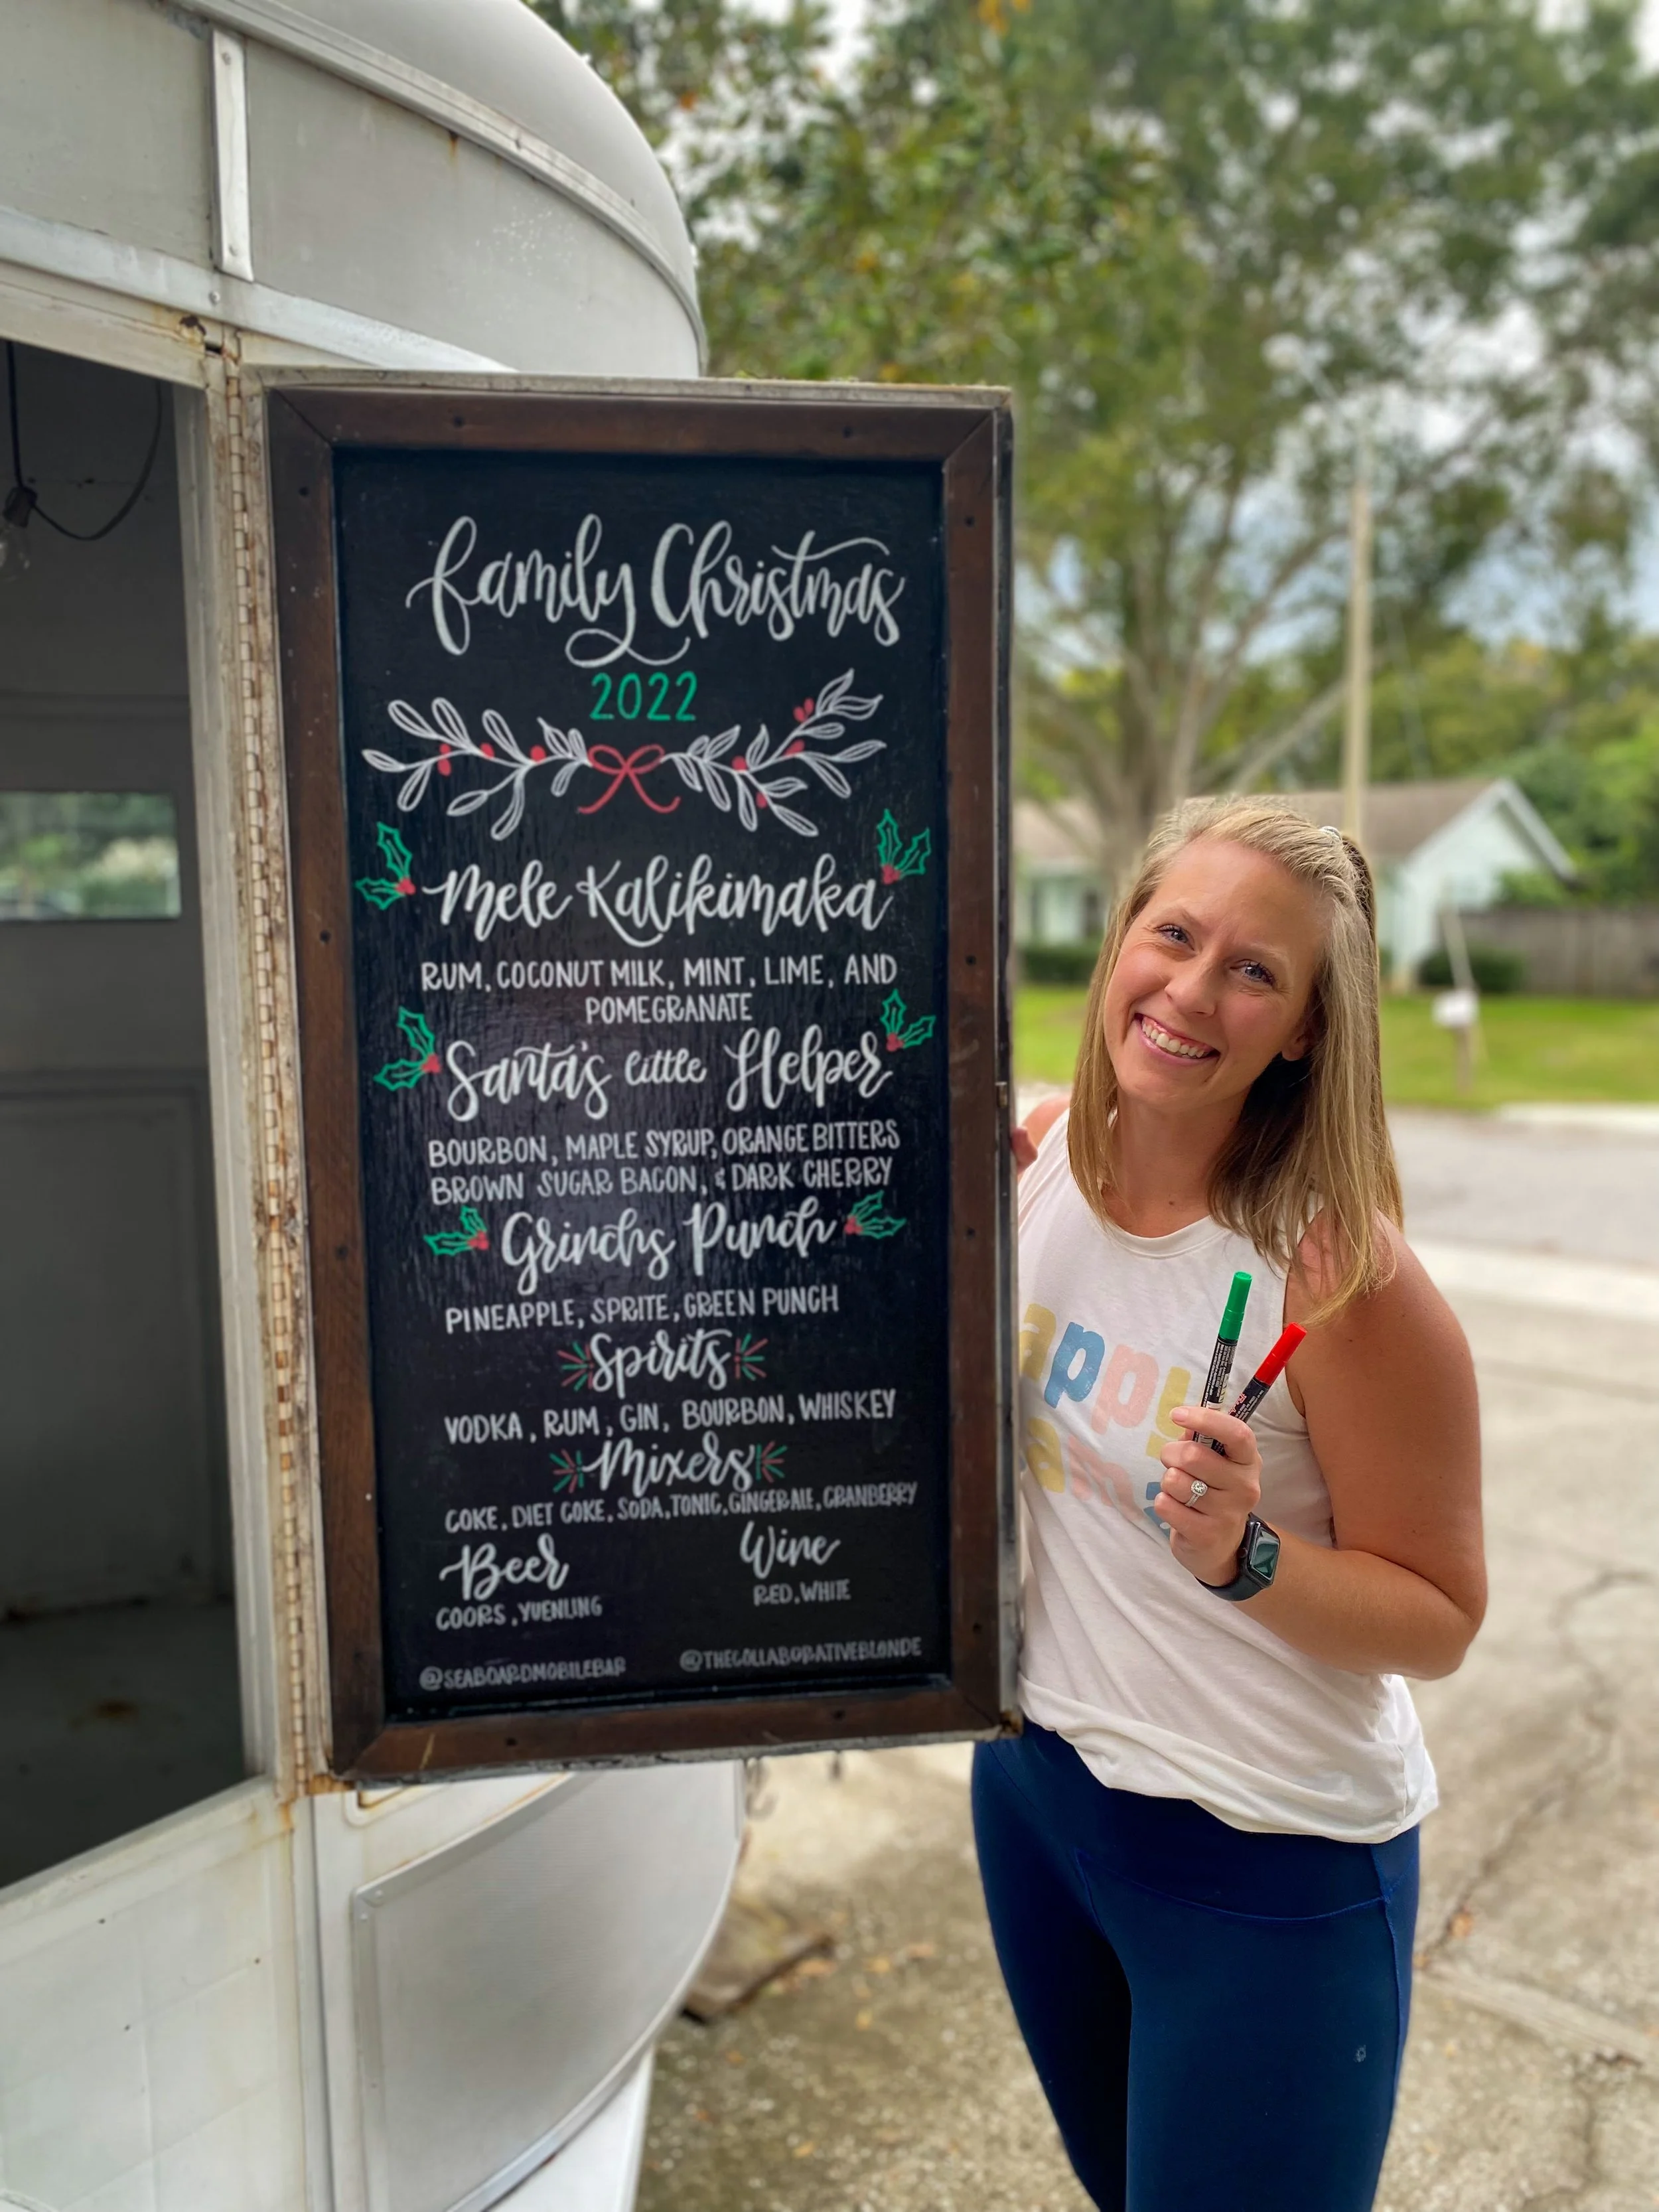 family Christmas
2022
Mele Kalikimaka
RUM, COCONUT MILK, MINT, LIME, AND
POMEGRANATE
Santa's little Helper
BOURBON, MAPLE SYRUP, ORANGE BITTERS
BROWN SUGAR BACON, & DARK CHERRY
Grinchs Punch
PINEAPPLE, SPRITE, GREEN PUNCH
Spirits
VODKA, RUM, GIN, BOURBON, WHISKEY
Mixers
COKE, DIET COKE, SODA, TONIC, GINGERALE, CRANBERRY
Beer Wine
COORS, YUENLING RED, WHITE
@SEABOARDMOBILEBAR @THECOLLABORATIVEBLONDE
appy
ama